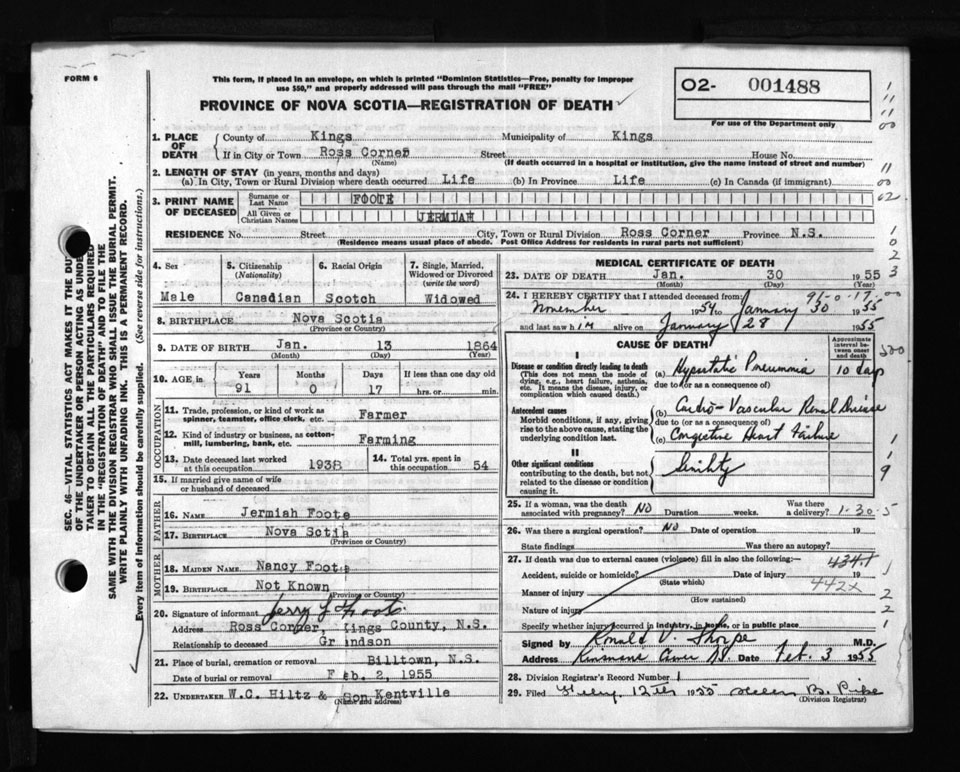 FORM 6
This form, if placed in an envelope, on which is printed "Dominion Statistics—Free, penalty for improper
use $50," and properly addressed will pass through the mail "FREE"
PROVINCE OF NOVA SCOTIA—REGISTRATION OF DEATH
O2- 001488
For use of the Department only
1. PLACE OF DEATH { County of Kings Municipality of Kings
If in City or Town Ross Corner Street House No.
(Name) (If death occurred in a hospital or institution, give the name instead of street and number)
2. LENGTH OF STAY (in years, months and days)
(a) In City, Town or Rural Division where death occurred Life (b) In Province Life (c) In Canada (if immigrant)
3. PRINT NAME OF DECEASED { Surname or Last Name FOOTE
All Given or Christian Names JERMIAH
RESIDENCE No. Street City, Town or Rural Division Ross Corner Province N.S.
(Residence means usual place of abode. Post Office Address for residents in rural parts not sufficient)
4. Sex Male
5. Citizenship (Nationality) Canadian
6. Racial Origin Scotch
7. Single, Married, Widowed or Divorced (write the word) Widowed
8. BIRTHPLACE Nova Scotia
(Province or Country)
9. DATE OF BIRTH Jan. 13 1864
(Month) (Day) (Year)
10. AGE in { Years 91 Months 0 Days 17 If less than one day old
hrs. or min.
OCCUPATION
11. Trade, profession, or kind of work as spinner, teamster, office clerk, etc. Farmer
12. Kind of industry or business, as cotton-mill, lumbering, bank, etc. Farming
13. Date deceased last worked at this occupation 1938
14. Total yrs. spent in this occupation 54
15. If married give name of wife or husband of deceased
FATHER
16. NAME Jermiah Foote
17. BIRTHPLACE Nova Sotia
(Province or Country)
MOTHER
18. MAIDEN NAME Nancy Foote
19. BIRTHPLACE Not Known
(Province or Country)
20. Signature of informant Jerry L Foote
Address Ross Corner, Kings County, N.S.
Relationship to deceased Grandson
21. Place of burial, cremation or removal Billtown, N.S.
Date of burial or removal Feb. 2, 1955
22. UNDERTAKER W.C. Hiltz & Son Kentville
(Name and address)
MEDICAL CERTIFICATE OF DEATH
23. DATE OF DEATH Jan. 30 1955
(Month) (Day) (Year)
91-0-17
24. I HEREBY CERTIFY that I attended deceased from
November 1954 to January 30 1955
and last saw him alive on January 28 1955
CAUSE OF DEATH
Approximate interval between onset and death
I
Disease or condition directly leading to death
(This does not mean the mode of dying, e.g., heart failure, asthenia, etc. It means the disease, injury, or complication which caused death.)
(a) Hypostatic Pneumonia 10 days
due to (or as a consequence of)
Antecedent causes
Morbid conditions, if any, giving rise to the above cause, stating the underlying condition last.
(b) Cardio-Vascular Renal Disease
due to (or as a consequence of)
(c) Congestive Heart Failure
II
Other significant conditions
contributing to the death, but not related to the disease or condition causing it.
Senility
25. If a woman, was the death associated with pregnancy? NO Duration weeks. Was there a delivery? 1-30-5
26. Was there a surgical operation? NO Date of operation 19
State findings Was there an autopsy?
27. If death was due to external causes (violence) fill in also the following: 434.1
Accident, suicide or homicide? Date of injury 19
(State which)
442X
Manner of injury
(How sustained)
Nature of injury
Specify whether injury occurred in industry, in home, or in public place
Signed by Ronald V. Thorpe M.D.
Address N.S. Date Feb. 3 1955
28. Division Registrar's Record Number 1
29. Filed 12th 1955 Helen B.
(Division Registrar)
SEC. 46—VITAL STATISTICS ACT MAKES IT THE DUTY
OF THE UNDERTAKER OR PERSON ACTING AS UNDER
TAKER TO OBTAIN ALL THE PARTICULARS REQUIRED
IN THE "REGISTRATION OF DEATH" AND TO FILE THE
SAME WITH THE DIVISION REGISTRAR WHO SHALL ISSUE THE BURIAL PERMIT.
WRITE PLAINLY WITH UNFADING INK. THIS IS A PERMANENT RECORD.
Every item of information should be carefully supplied. (See reverse side for instructions.)